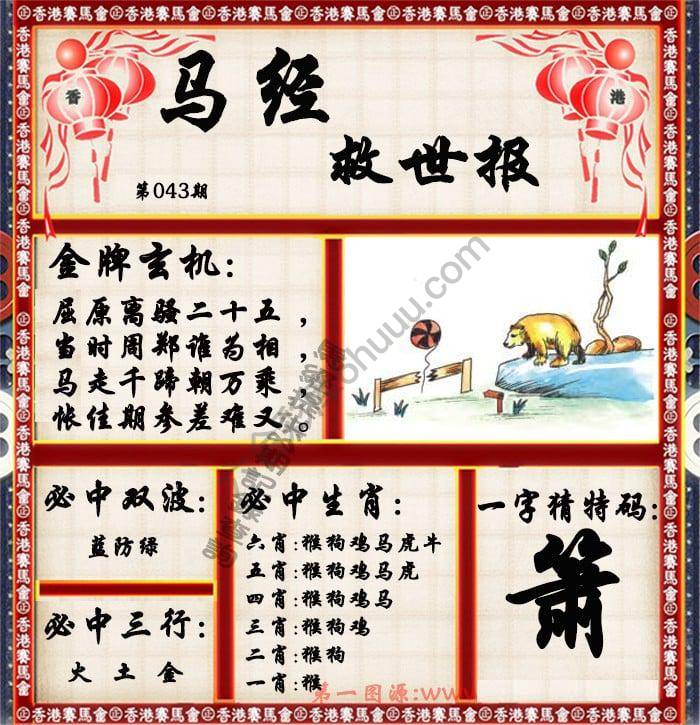 香港賽馬會
香
港
马经
救世报
第043期
金牌玄机:
屈原离骚二十五，
当时周郑谁为相，
马走千蹄朝万乘，
怅佳期参差难又。
必中双波:
蓝防绿
必中三行:
火 土 金
必中生肖:
六肖:猴狗鸡马虎牛
五肖:猴狗鸡马虎
四肖:猴狗鸡马
三肖:猴狗鸡
二肖:猴狗
一肖:猴
一字猜特码:
箫
第一图源:www